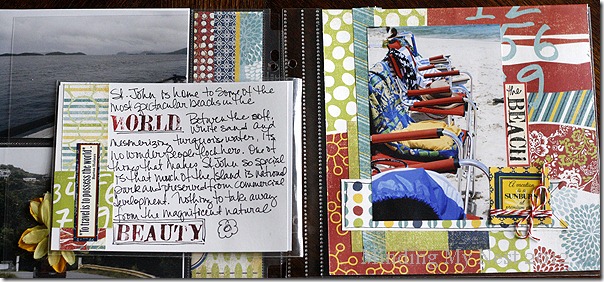 St. John is home to some of the
most spectacular beaches in the
WORLD. Between the soft,
white sand and
mesmerizing, turquoise water, it's
no wonder people flock here. One of
things that makes St. John so special
is that much of the island is national
park and preserved from commercial
development. Nothing to take away
from the magnificent natural
BEAUTY
"To travel is to possess the world"
34
7 9
12
56
9
the BEACH
A
is a
SUNBURN